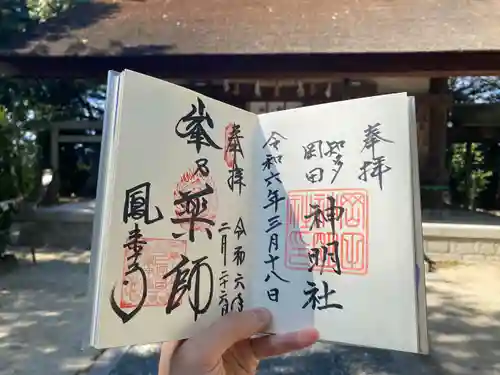 奉拝
知多
岡田
神明社
令和六年三月十八日
奉拝
峯乃
薬師
令和六年
二月二十六日
鳳来寺